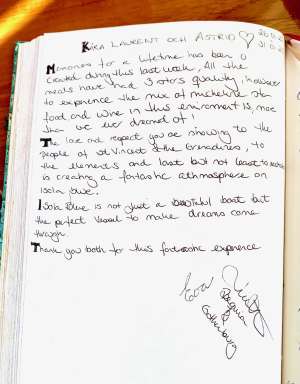 KIKA LAURENT OCH ASTRID ♡
Memories for a lifetime has been
created during this last week. All the
meals have had 3 stars quality, however
to experience the mix of michelin star
food and wine in this enviroment is, more
than we ever dreamed of!
The love and respect you are showing to the
people of St Vincent & the Grenadines, to
the elements and last but not least to
is creating a fantastic athmosphere on
Isola blue.
Isola Blue is not just a beautiful boat but
the perfect vessel to make dreams come
through.
Thank you both for this fantastic experience
Eva
&
Gothenburg